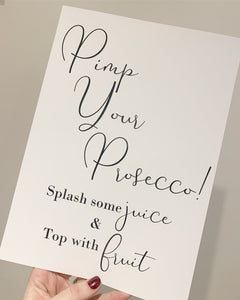 Pimp
Your
Prosecco!
Splash some juice
&
Top with fruit